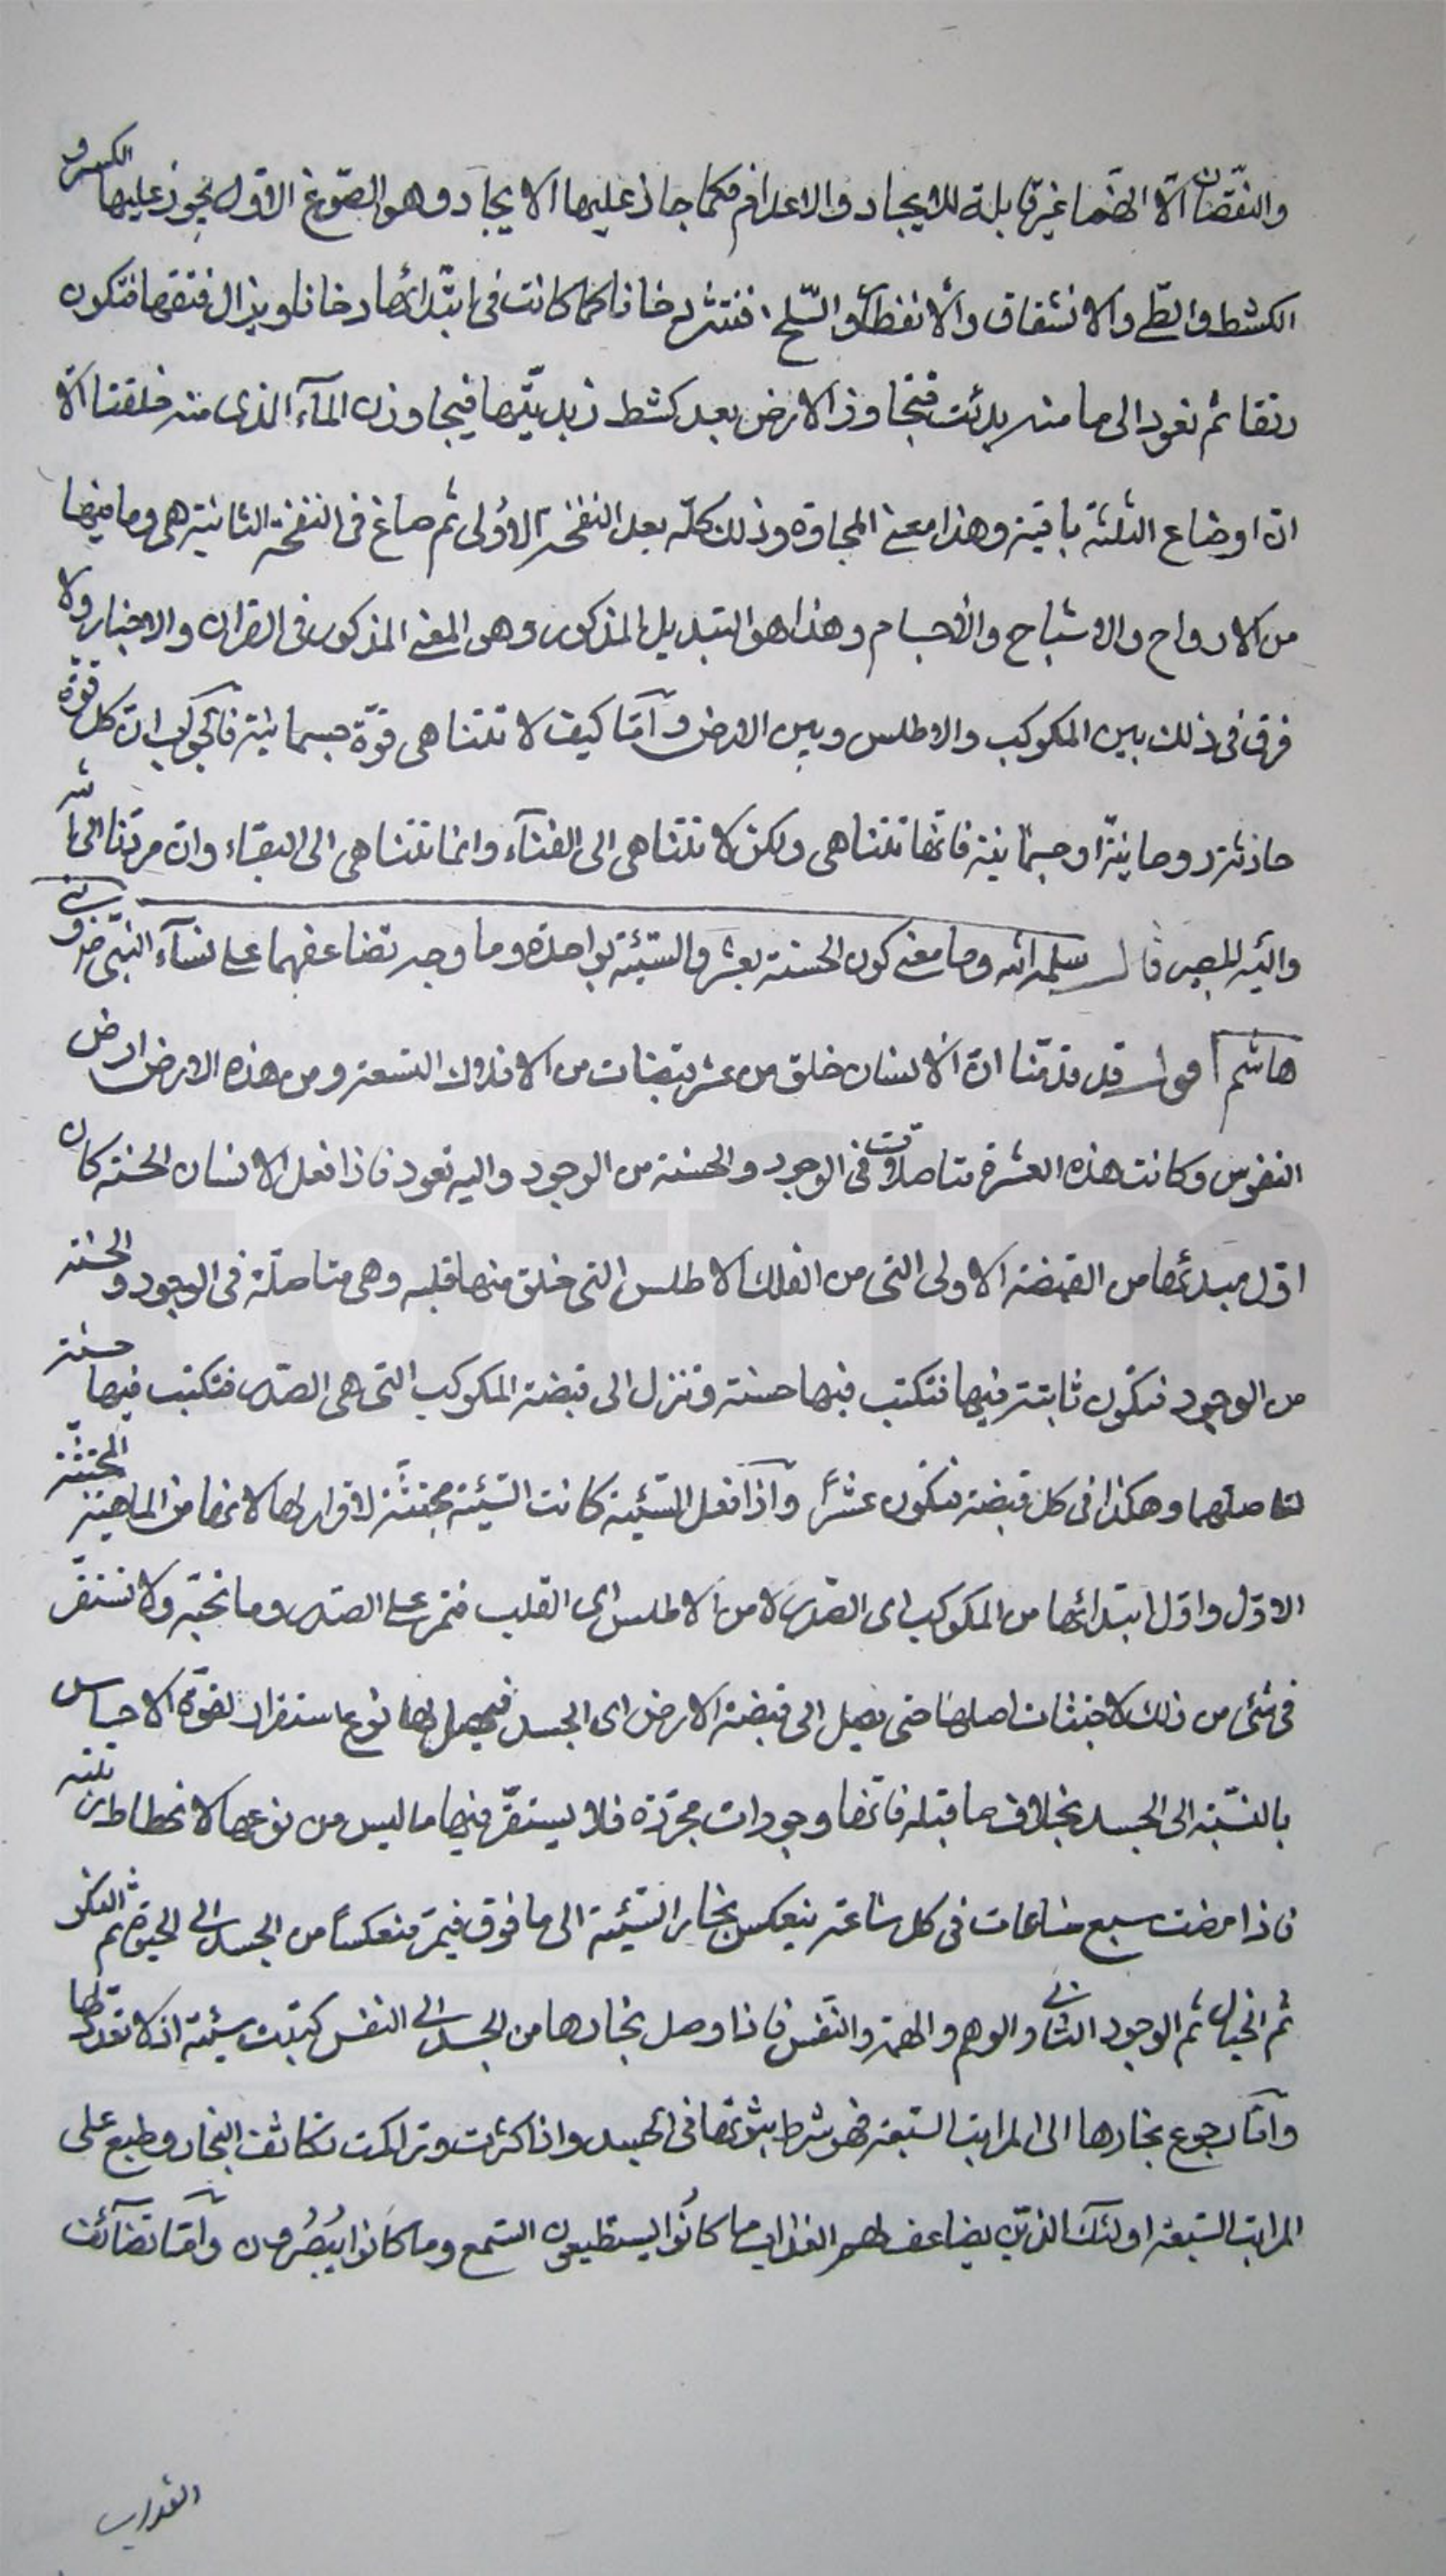 والنقصان الا انها غير قابلة للايجاد والاعدام فكما جاز عليها الايجاد وهو الصوغ الاول يجوز عليها الكسر و
الكشط والطي والانشقاق والانفطار والسلخ فتنثر دخانا كما كانت في ابتدائها دخانا ويزال فتقها فتكون
رتقا ثم تعود الى ما منه بدئت فتجاوز الارض بعد كشط زبديتها فيجاوزن المآء الذى منه خلقتا الا
ان اوضاع الثلثة باقية وهذا معنى المجاورة وذلك كله بعد النفخة الاولى ثم صاغ في النفخة الثانية هى وما فيها
من الارواح والاشباح والاجسام وهذا هو التبديل المذكور وهو المعنى المذكور في القرآن والاخبار ولا
فرق في ذلك بين المكوكب والاطلس وبين الارض وامّا كيف لا تتناهى قوّة جسمانية فالجواب ان كل قوّة
حادثة روحانيّة او جسمانية فانّها تتناهى ولكن لا تتناهى الى الفنآء وانما تتناهى الى البقاء وان مردّنا الى الله
واليه المصير قال سلمه الله وما معنى كون الحسنة بعشر والسيّئة بواحدة وما وجه تضاعفهما على نسآء النبىّ ص وبني
هاشم اقول قد قدّمنا انّ الانسان خلق من عشر قبضات من الافلاك التسعة ومن هذه الارض ارض
النفوس وكانت هذه العشرة متاصلات في الوجود والحسنة من الوجود واليه تعود فاذا فعل الانسان الحسنة كان
اوّل مبدئها من القبضة الاولى التى من الفلك الاطلس التى خلق منها قلبه وهى متاصّلة في الوجود والحسنة
من الوجود فتكون ثابتة فيها فتكتب فيها حسنة وتنزل الى قبضة المكوكب التى هى الصدر فتكتب فيها حسنة
لتاصلهما وهكذا فى كل قبضة فتكون عشراً واذا فعل السّيئة كانت السّيئة مجتثّة لا قرار لها لانها من الماهية المجتثّة
الاوّل واوّل ابتدائها من المكوكب اى الصّدر لا من الاطلس اى القلب فتمر على الصدر وما تحته ولا تستقرّ
فى شئ من ذلك لاجتثاث اصلها حتى يصل الى قبضة الارض اى الجسد فيحصل لها نوع استقرار لقوّة الاحساس
بالنسّبة الى الجسد بخلاف ما قبله فانّها وجودات مجرّدة فلا يستقرّ فيها ما ليس من نوعها لانحطاط رتبته
فاذا مضت سبع ساعات فى كل ساعة ينعكس بخار السّيّئة الى ما فوق فيمرّ منعكساً من الجسد الى الحيوة ثم الفكر
ثم الخيال ثم الوجود الثانى والوهم والهمة والنّفس فاذا وصل بخارها من الجسد الى النفس كتبت سيئة اذ لا تعدد لها
وامّا رجوع بخارها الى المراتب السّبعة فهو شرط ثبوتها فى الجسد واذا كثرت وتراكمت تكاثف البخار وطبع على
المراتب السّبعة اولئك الذين يضاعف لهم العذاب ما كانوا يستطيعون السّمع وما كانوا يبصرون وامّا تضاعف
العذاب